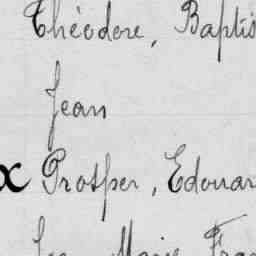 Théodore, Baptis
Jean
x Prosper, Edouar
Marie Fran